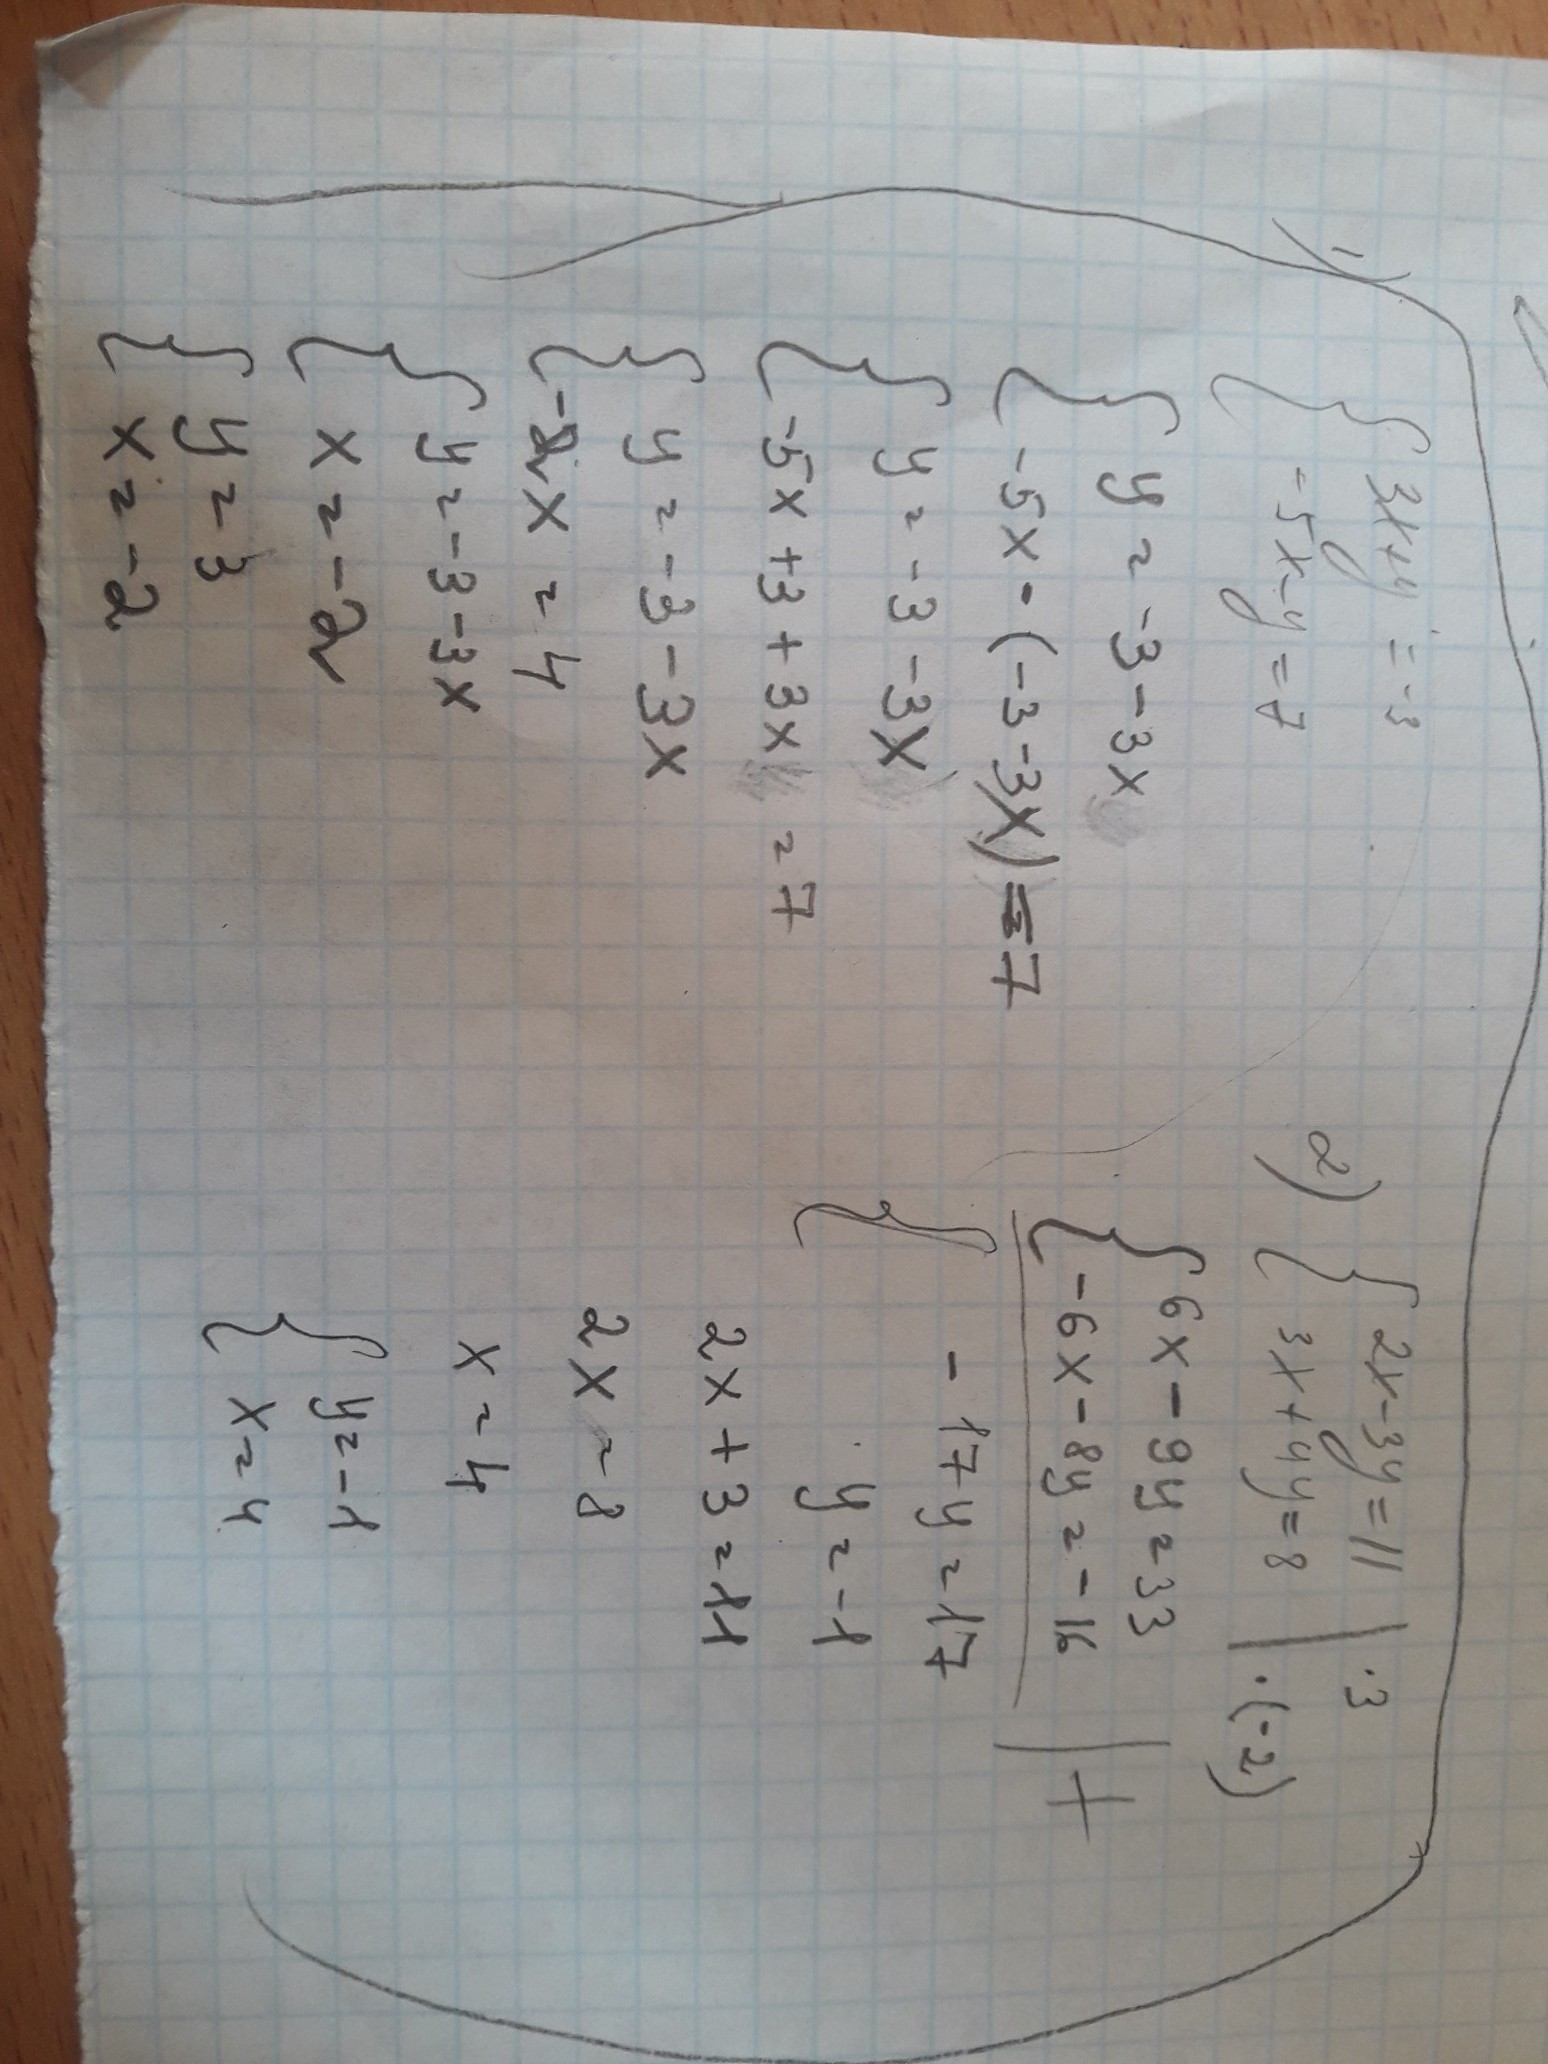 1) { 3x+y = -3
-5x-y = 7
{ y = -3-3x
-5x - (-3-3x) = 7
{ y = -3-3x
-5x+3+3x = 7
{ y = -3-3x
-2x = 4
{ y = -3-3x
x = -2
{ y = 3
x = -2
2) { 2x-3y=11 | ·3
3x+4y=8 | ·(-2)
{ 6x-9y=33
-6x-8y=-16 | +
{ -17y=17
y=-1
2x+3=11
2x=8
x=4
{ y=-1
x=4